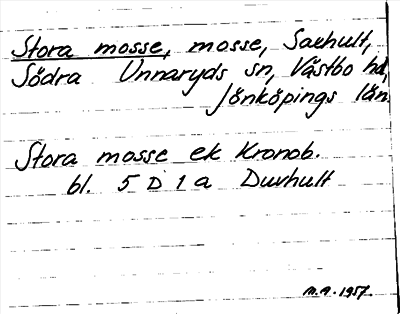 Stora mosse, mosse, Saxhult,
Södra Unnaryds sn, Västbo hd,
Jönköpings län
Stora mosse ek Kronob.
bl. 5 D 1 a Duvhult
M.A. 1957.